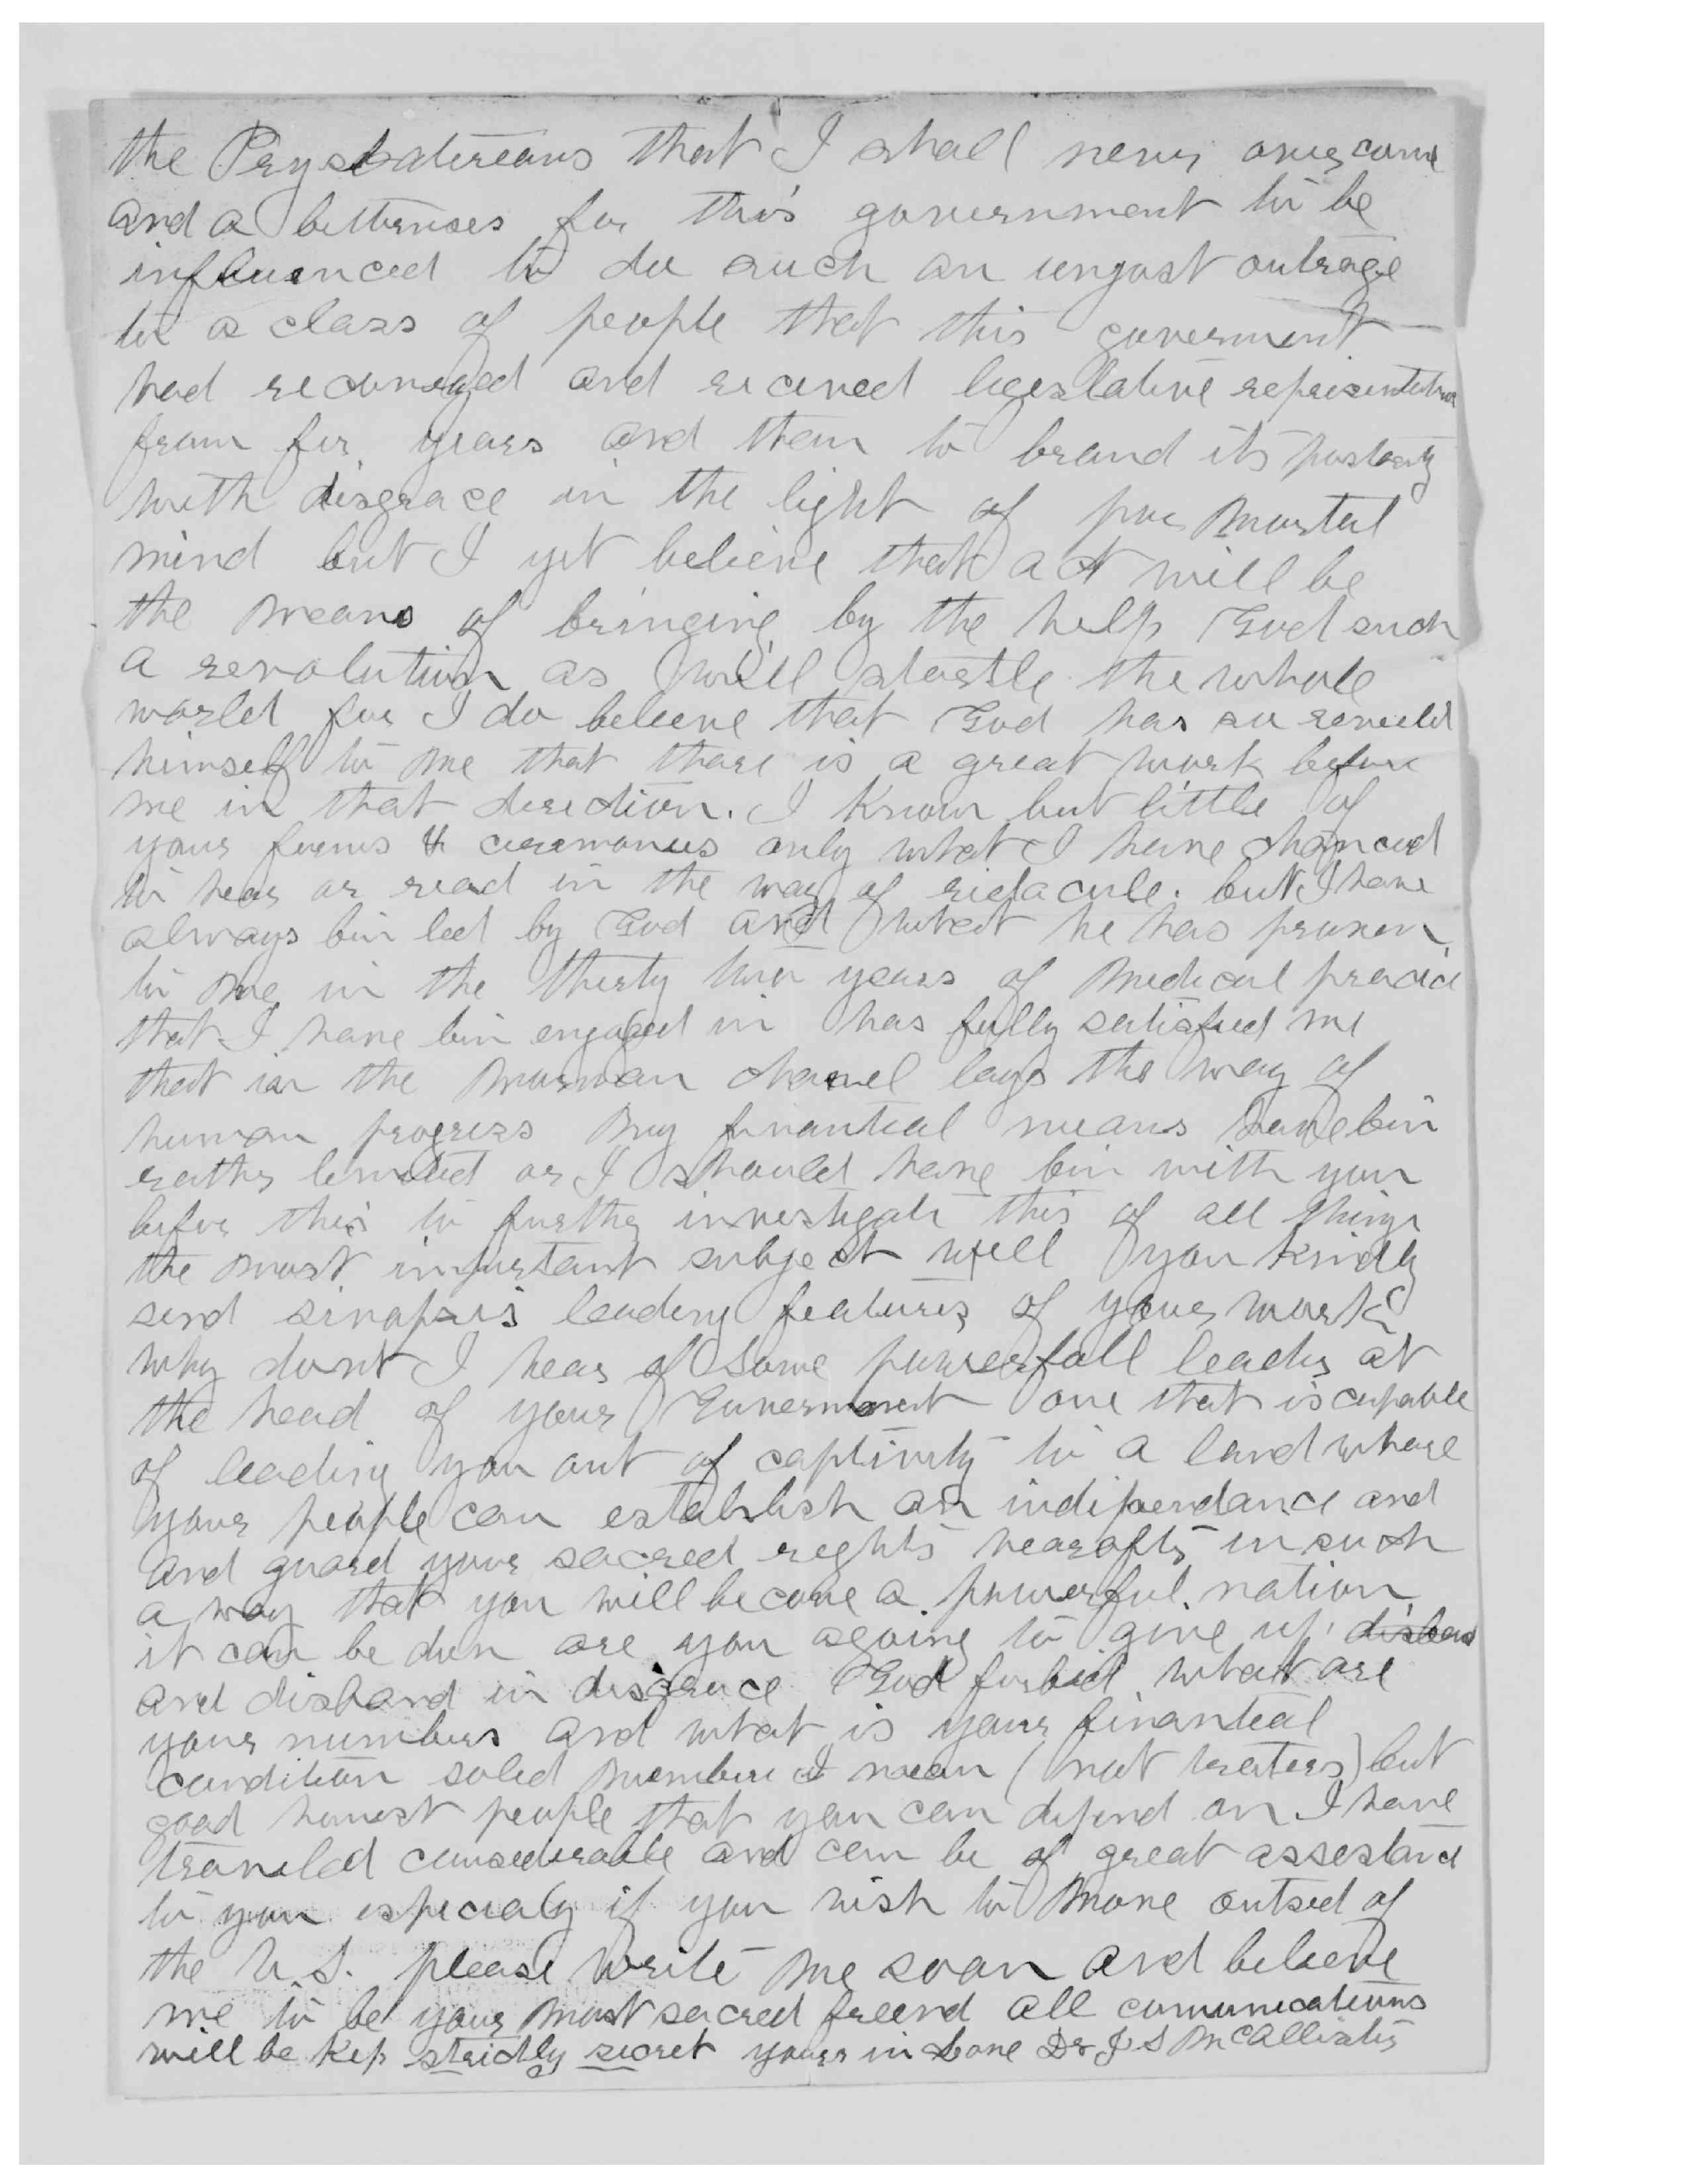 the Prysbatireans that I shall never overcome
and a bitterness for this government to be
influenced to do such an unjust outrage
to a class of people that this goverment
had recunized and recived legeslative representation
from for years and then to brand its posterity
with disgrace in the light of poor Mortal
mind but I yet believe that act will be
the means of bringing by the help God such
a revolution as will startle the whole
world for I do beleeve that God has so reveeld
himself to me that thare is a great work before
me in that direction. I know but little of
your forms & ceremonies only what I have chanced
to hear or read in the way of ridacule. but I have
always bin led by God and what he has proven
to me in the thirty two years of Medical practice
that I have bin engaged in has fully satisfied me
that in the Morman chanel lays the way of
human progress My finantial means have bin
rather limited or I should have bin with you
before this to further investigate this of all things
the most important subject will you kindly
send sinopsis leading features of your work
why dont I hear of some powerfull leader at
the head of your Government one that is capable
of leading you out of captivity to a land whare
your people can establish an indipendance and
and guard your sacred rights hearafter in such
a way that you will become a powerful nation
it can be don are you agoing to give up disban
and disband in disgrace God forbid what are
your numbers and what is your finantial
condition solid members I mean (not traters) but
good honest people that you can depend on I have
traveled considerable and can be of great assestance
to you especialy if you wish to move outsed of
the U.S. please write me soon and beleeve
me to be your most sacred freend all comunications
will be kep strictly secret yours in Love Dr J S McCallister